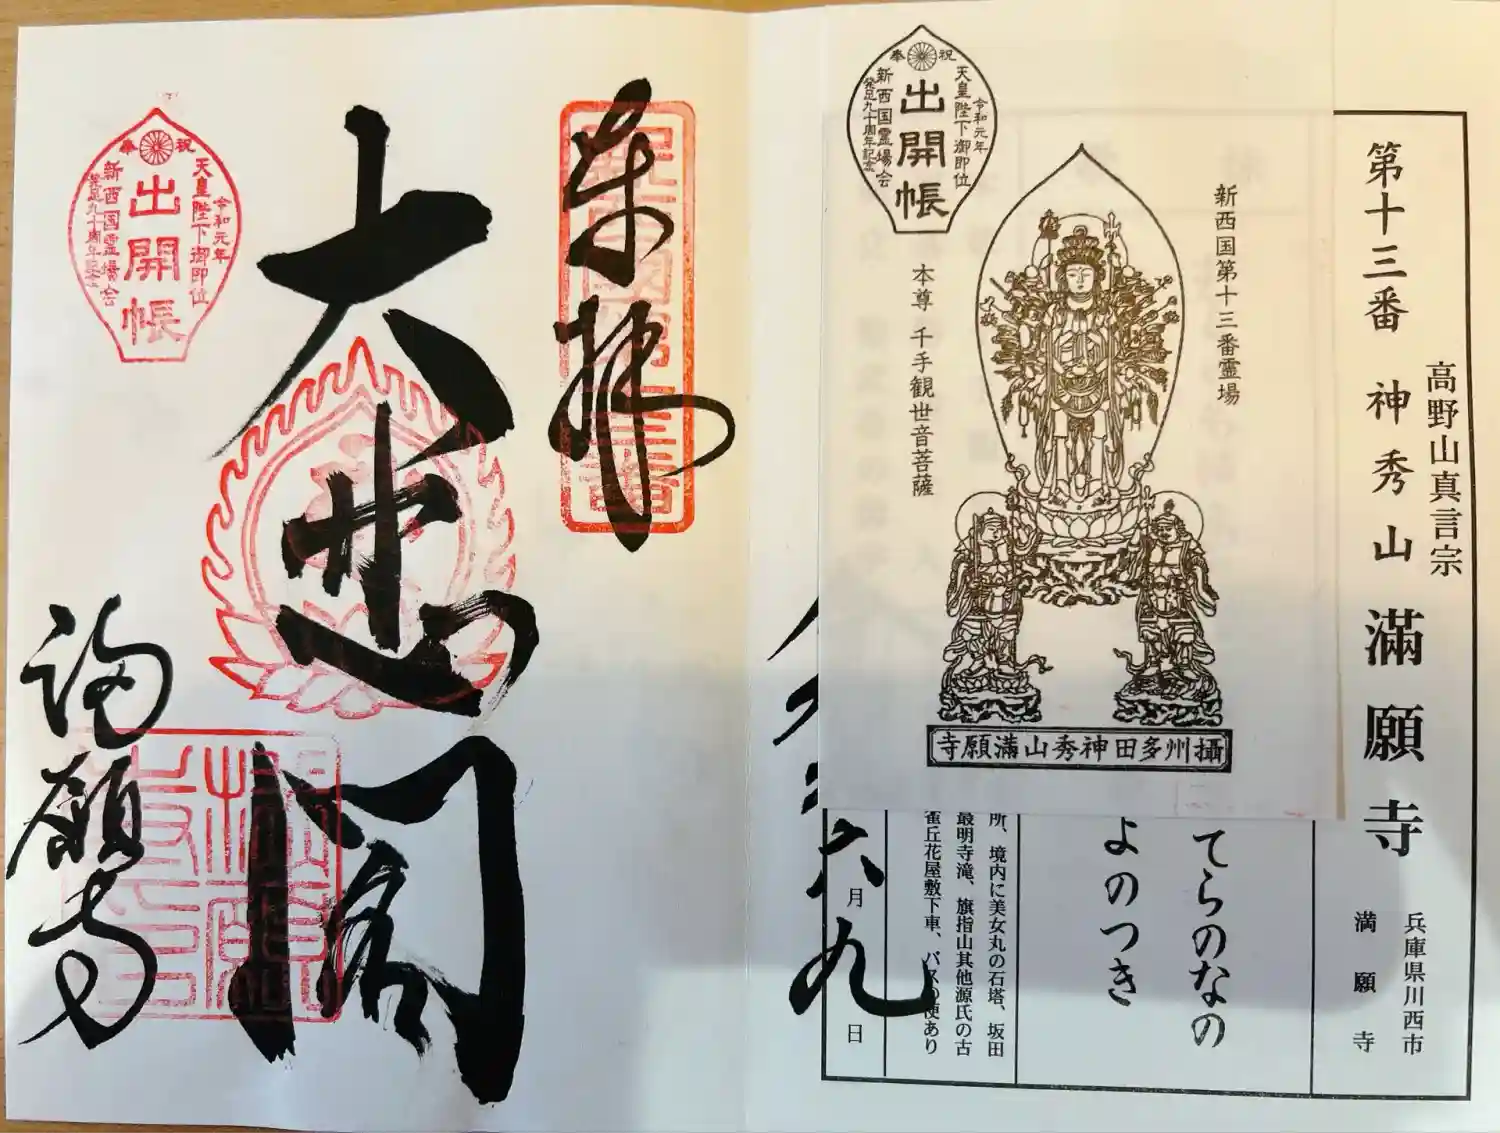 第十三番 神秀山 滿願寺
高野山真言宗
兵庫県川西市
満願寺
てらのなの
よのつき
所、境内に美女丸の石塔、坂田
最明寺滝、旗指山其他源氏の古
雀丘花屋敷下車、バスの便あり
六月九日
奉祝
令和元年
天皇陛下御即位
出開帳
新西国霊場会
発足九十周年記念
新西国第十三番霊場
本尊 千手観世音菩薩
攝州多田神秀山滿願寺
奉拝
大悲閣
満願寺
奉祝
令和元年
天皇陛下御即位
出開帳
新西国霊場会
発足九十周年記念